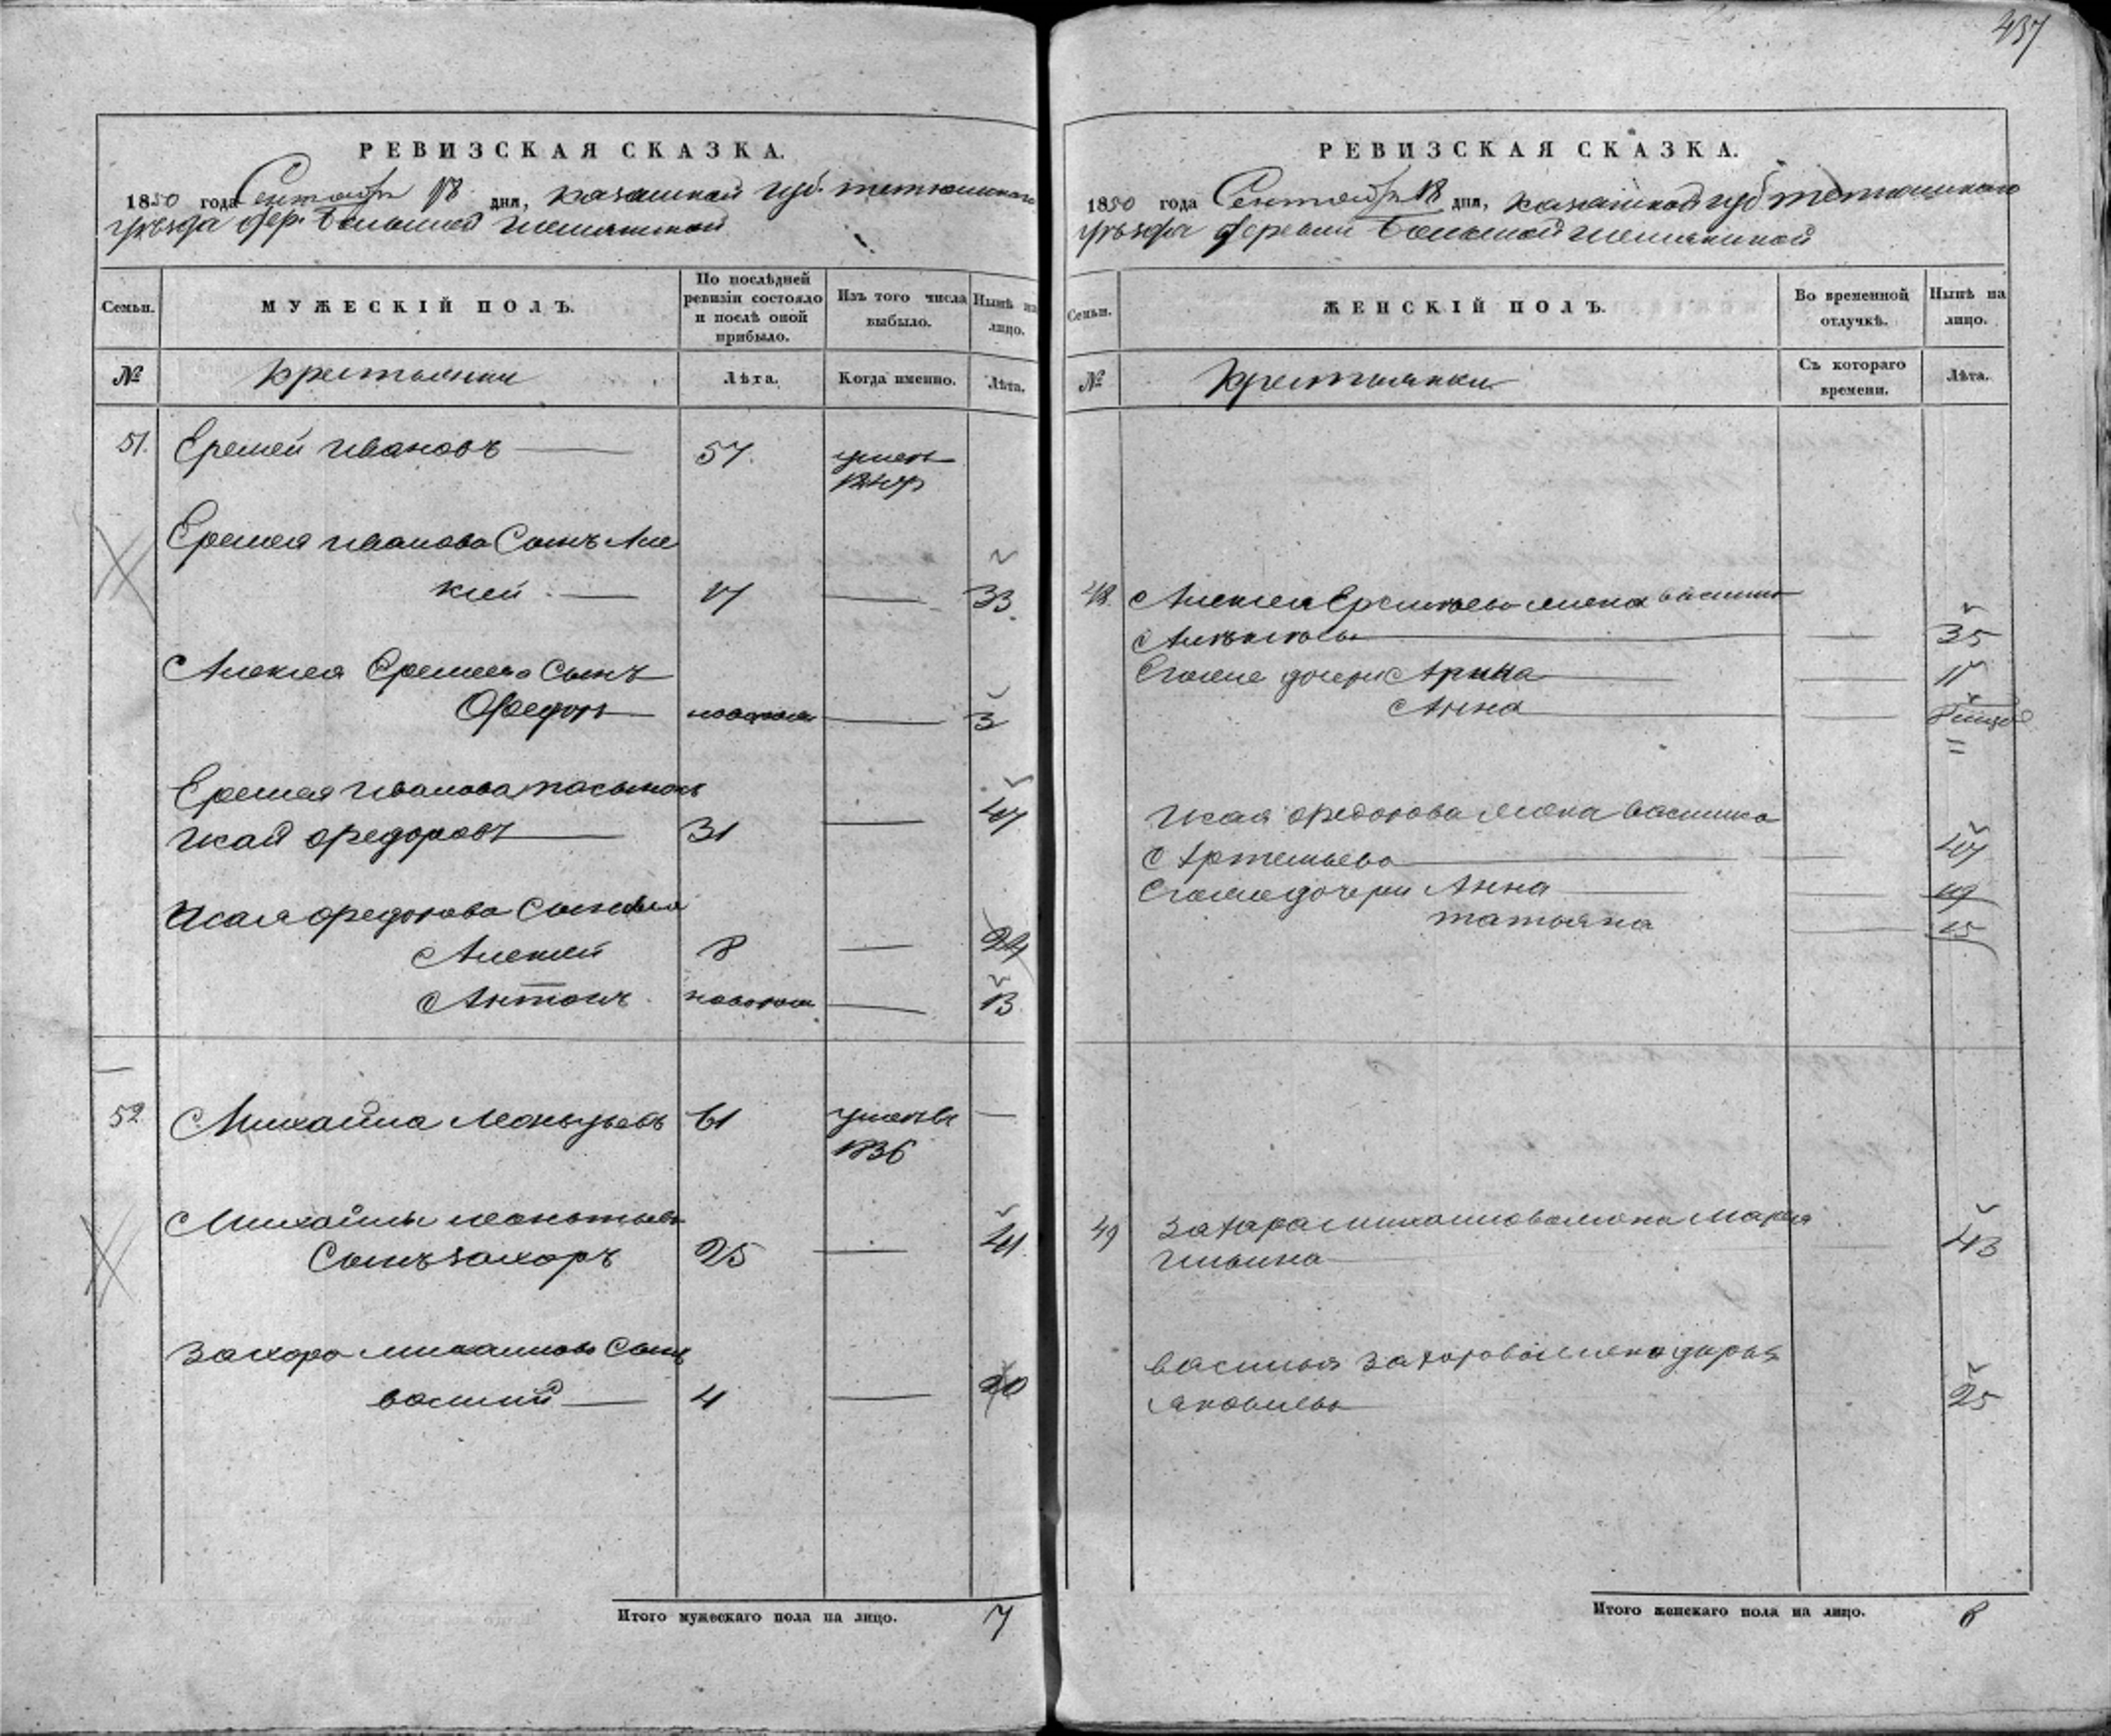 437
РЕВИЗСКАЯ СКАЗКА.
1850 года Сентября 18 дня, казанской губ. тетюшскаго
уѣзда дер. Большой
Семьи.
МУЖЕСКІЙ ПОЛЪ.
По послѣдней ревизіи состояло и послѣ оной прибыло.
Изъ того числа выбыло.
Нынѣ на лицо.
№
крестьянки
Лѣта.
Когда именно.
Лѣта.
51. Еремей Ивановъ 57. умеръ
Еремея Иванова Сынъ Але
ксей 17 33.
Алексея Еремеева Сынъ
Ѳедоръ 3
Еремея Иванова пасынокъ 47
Исай Федоровъ 31
Исая Федорова Сыновья
Алексей 8 24
Антонъ новорож 13
52. Михайла Леонтьевъ 61 умеръ
1836
Михайлы Леонтьева
Сынъ Захоръ 25 41.
Захора Михаилова Сынъ
Василий 4 20
Итого мужескаго пола на лицо. 7
РЕВИЗСКАЯ СКАЗКА.
1850 года Сентября 18 дня, казанской губ тетюшскаго
уѣзда деревни Большой
Семьи.
ЖЕНСКІЙ ПОЛЪ.
Во временной отлучкѣ.
Нынѣ на лицо.
№
крестьянки
Съ котораго времени.
Лѣта.
48. Алексея Еремеева жена Васили
35
Егоже дочери Арина 11
Анна
Исая Федорова жена Василиса
Артемьева 47
Егоже дочери Анна 19
татьяна 15
49 Захара Михаилова жена Марья
Ильина 43
Василья Захорова жена дарья
Яковлева 25
Итого женскаго пола на лицо. 8